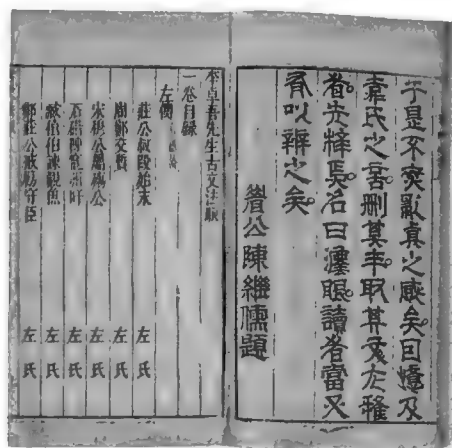 于是不突獸真之感矣回憶及
袁氏之害刪其半取其尤在種
者先繹焉名曰瓊眼讀者當又
有以辨之矣
眉公陳繼儒題
李卓吾先生古文法眼
一卷目錄
左傳
莊公叔段始末 左氏
周鄭交質 左氏
宋穆公屬殤公 左氏
石碏諫寵州吁 左氏
臧僖伯諫觀魚 左氏
鄭莊公戒飭守臣 左氏